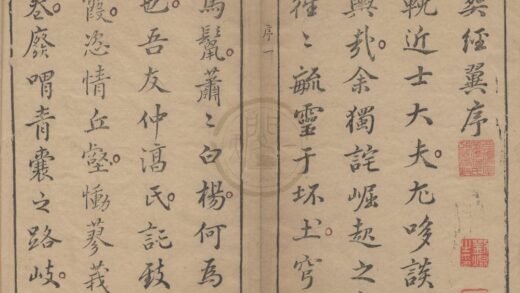 葬經翼序
輓近士大夫尤哆談
輿哉余獨詫崛起之
往〻毓靈于坏土穹
序一
馬鬣蕭〻白楊何爲
也吾友仲淳氏託致
霞恣情丘壑慟蓼莪
卷廢喟青囊之路岐